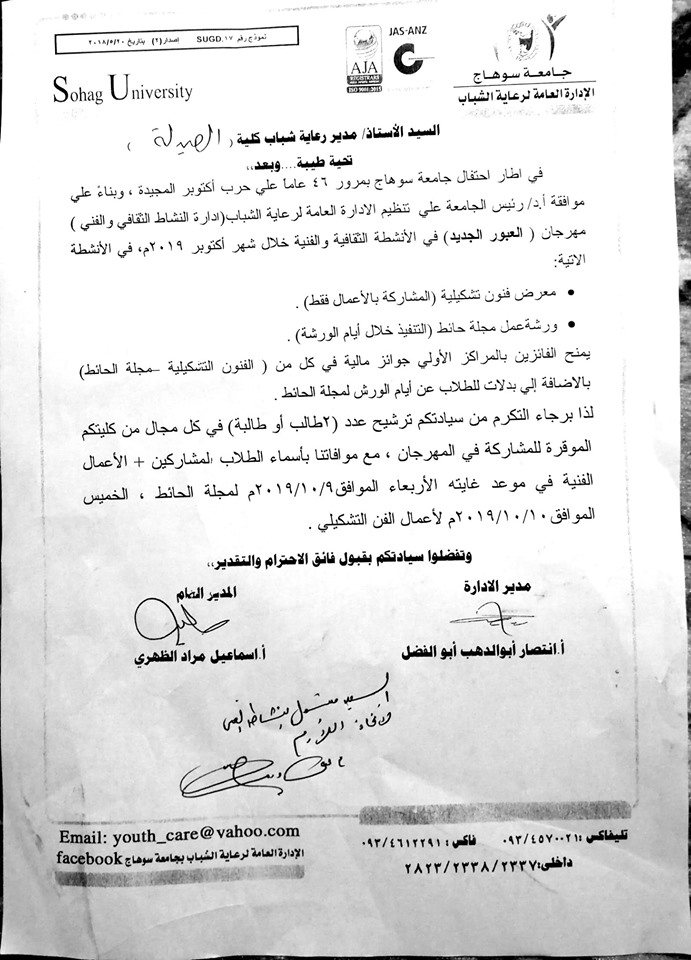 نموذج رقم SUGD.١٧ اصدار(٢) بتاريخ ٢٠١٨/٥/٢٠
JAS-ANZ
AJA
REGISTRARS
ISO 9001:2015
جامعة سوهاج
الإدارة العامة لرعاية الشباب
Sohag University
السيد الأستاذ/ مدير رعاية شباب كلية ( الصيدلة )
تحية طيبة....وبعد،،
في اطار احتفال جامعة سوهاج بمرور ٤٦ عاماً علي حرب أكتوبر المجيدة ، وبناءً علي
موافقة أ.د/ رئيس الجامعة علي تنظيم الادارة العامة لرعاية الشباب(ادارة النشاط الثقافي والفني )
مهرجان ( العبور الجديد) في الأنشطة الثقافية والفنية خلال شهر أكتوبر ٢٠١٩م، في الأنشطة
الاتية:
• معرض فنون تشكيلية (المشاركة بالأعمال فقط) .
• ورشةعمل مجلة حائط (التنفيذ خلال أيام الورشة) .
يمنح الفائزين بالمراكز الأولي جوائز مالية في كل من ( الفنون التشكيلية –مجلة الحائط)
بالاضافة إلي بدلات للطلاب عن أيام الورش لمجلة الحائط .
لذا برجاء التكرم من سيادتكم ترشيح عدد (٢طالب أو طالبة) في كل مجال من كليتكم
الموقرة للمشاركة في المهرجان ، مع موافاتنا بأسماء الطلاب المشاركين + الأعمال
الفنية في موعد غايته الأربعاء الموافق٢٠١٩/١٠/٩م لمجلة الحائط ، الخميس
الموافق٢٠١٩/١٠/١٠م لأعمال الفن التشكيلي .
وتفضلوا سيادتكم بقبول فائق الاحترام والتقدير،،
مدير الادارة
المدير العام
أ.انتصار أبوالدهب أبو الفضل
أ.اسماعيل مراد الظهري
السيد مسئول النشاط الفني
لاتخاذ اللازم
تليفاكس : ٠٩٣/٤٥٧٠٠٢١ فاكس : ٠٩٣/٤٦١٢٢٩١
داخلى:٢٨٢٣/٢٣٣٨/٢٣٣٧
Email: youth_care@yahoo.com
الإدارة العامة لرعاية الشباب بجامعة سوهاج facebook